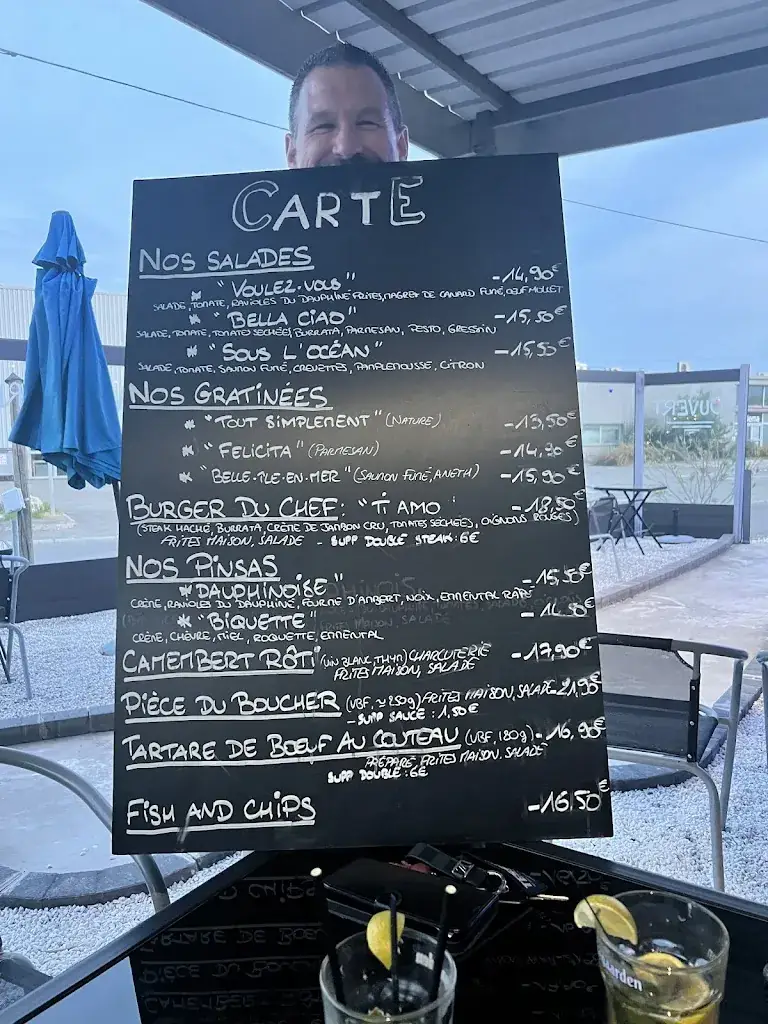 CARTE
NOS SALADES
* "VOULEZ-VOUS" -14,90€
SALADE, TOMATE, RAVIOLES DU DAUPHINÉ FRITES, MAGRET DE CANARD FUMÉ, OEUF MOLLET
* "BELLA CIAO" -15,50€
SALADE, TOMATE, TOMATES SECHÉES, BURRATA, PARMESAN, PESTO, GRESSIN
* "SOUS L'OCÉAN" -15,55€
SALADE, TOMATE, SAUMON FUMÉ, CREVETTES, PAMPLEMOUSSE, CITRON
NOS GRATINÉES
* "TOUT SIMPLEMENT" (NATURE) -13,50€
* "FELICITA" (PARMESAN) -14,90€
* "BELLE-ÎLE-EN-MER" (SAUMON FUMÉ, ANETH) -15,90€
BURGER DU CHEF: "TI AMO" -18,50€
(STEAK HACHÉ, BURRATA, CRÈME DE JAMBON CRU, TOMATES SECHÉES, OIGNONS ROUGES)
FRITES MAISON, SALADE - SUPP DOUBLE STEAK: 6€
NOS PINSAS
* DAUPHINOISE" -15,50€
CRÈME, RAVIOLES DU DAUPHINÉ, FOURME D'AMBERT, NOIX, EMMENTAL RAPÉ
* "BIQUETTE" -14,90€
CRÈME, CHÈVRE, MIEL, ROQUETTE, EMMENTAL
CAMEMBERT RÔTI (VIN BLANC, THYM) CHARCUTERIE -17,90€
FRITES MAISON, SALADE
PIÈCE DU BOUCHER (VBF, ≈ 250g) FRITES MAISON, SALADE -21,95€
- SUPP SAUCE : 1,50€
TARTARE DE BOEUF AU COUTEAU (VBF, 180g) -16,90€
PRÉPARÉ, FRITES MAISON, SALADE
SUPP DOUBLE : 6€
FISH AND CHIPS -16,50€
OUVERT